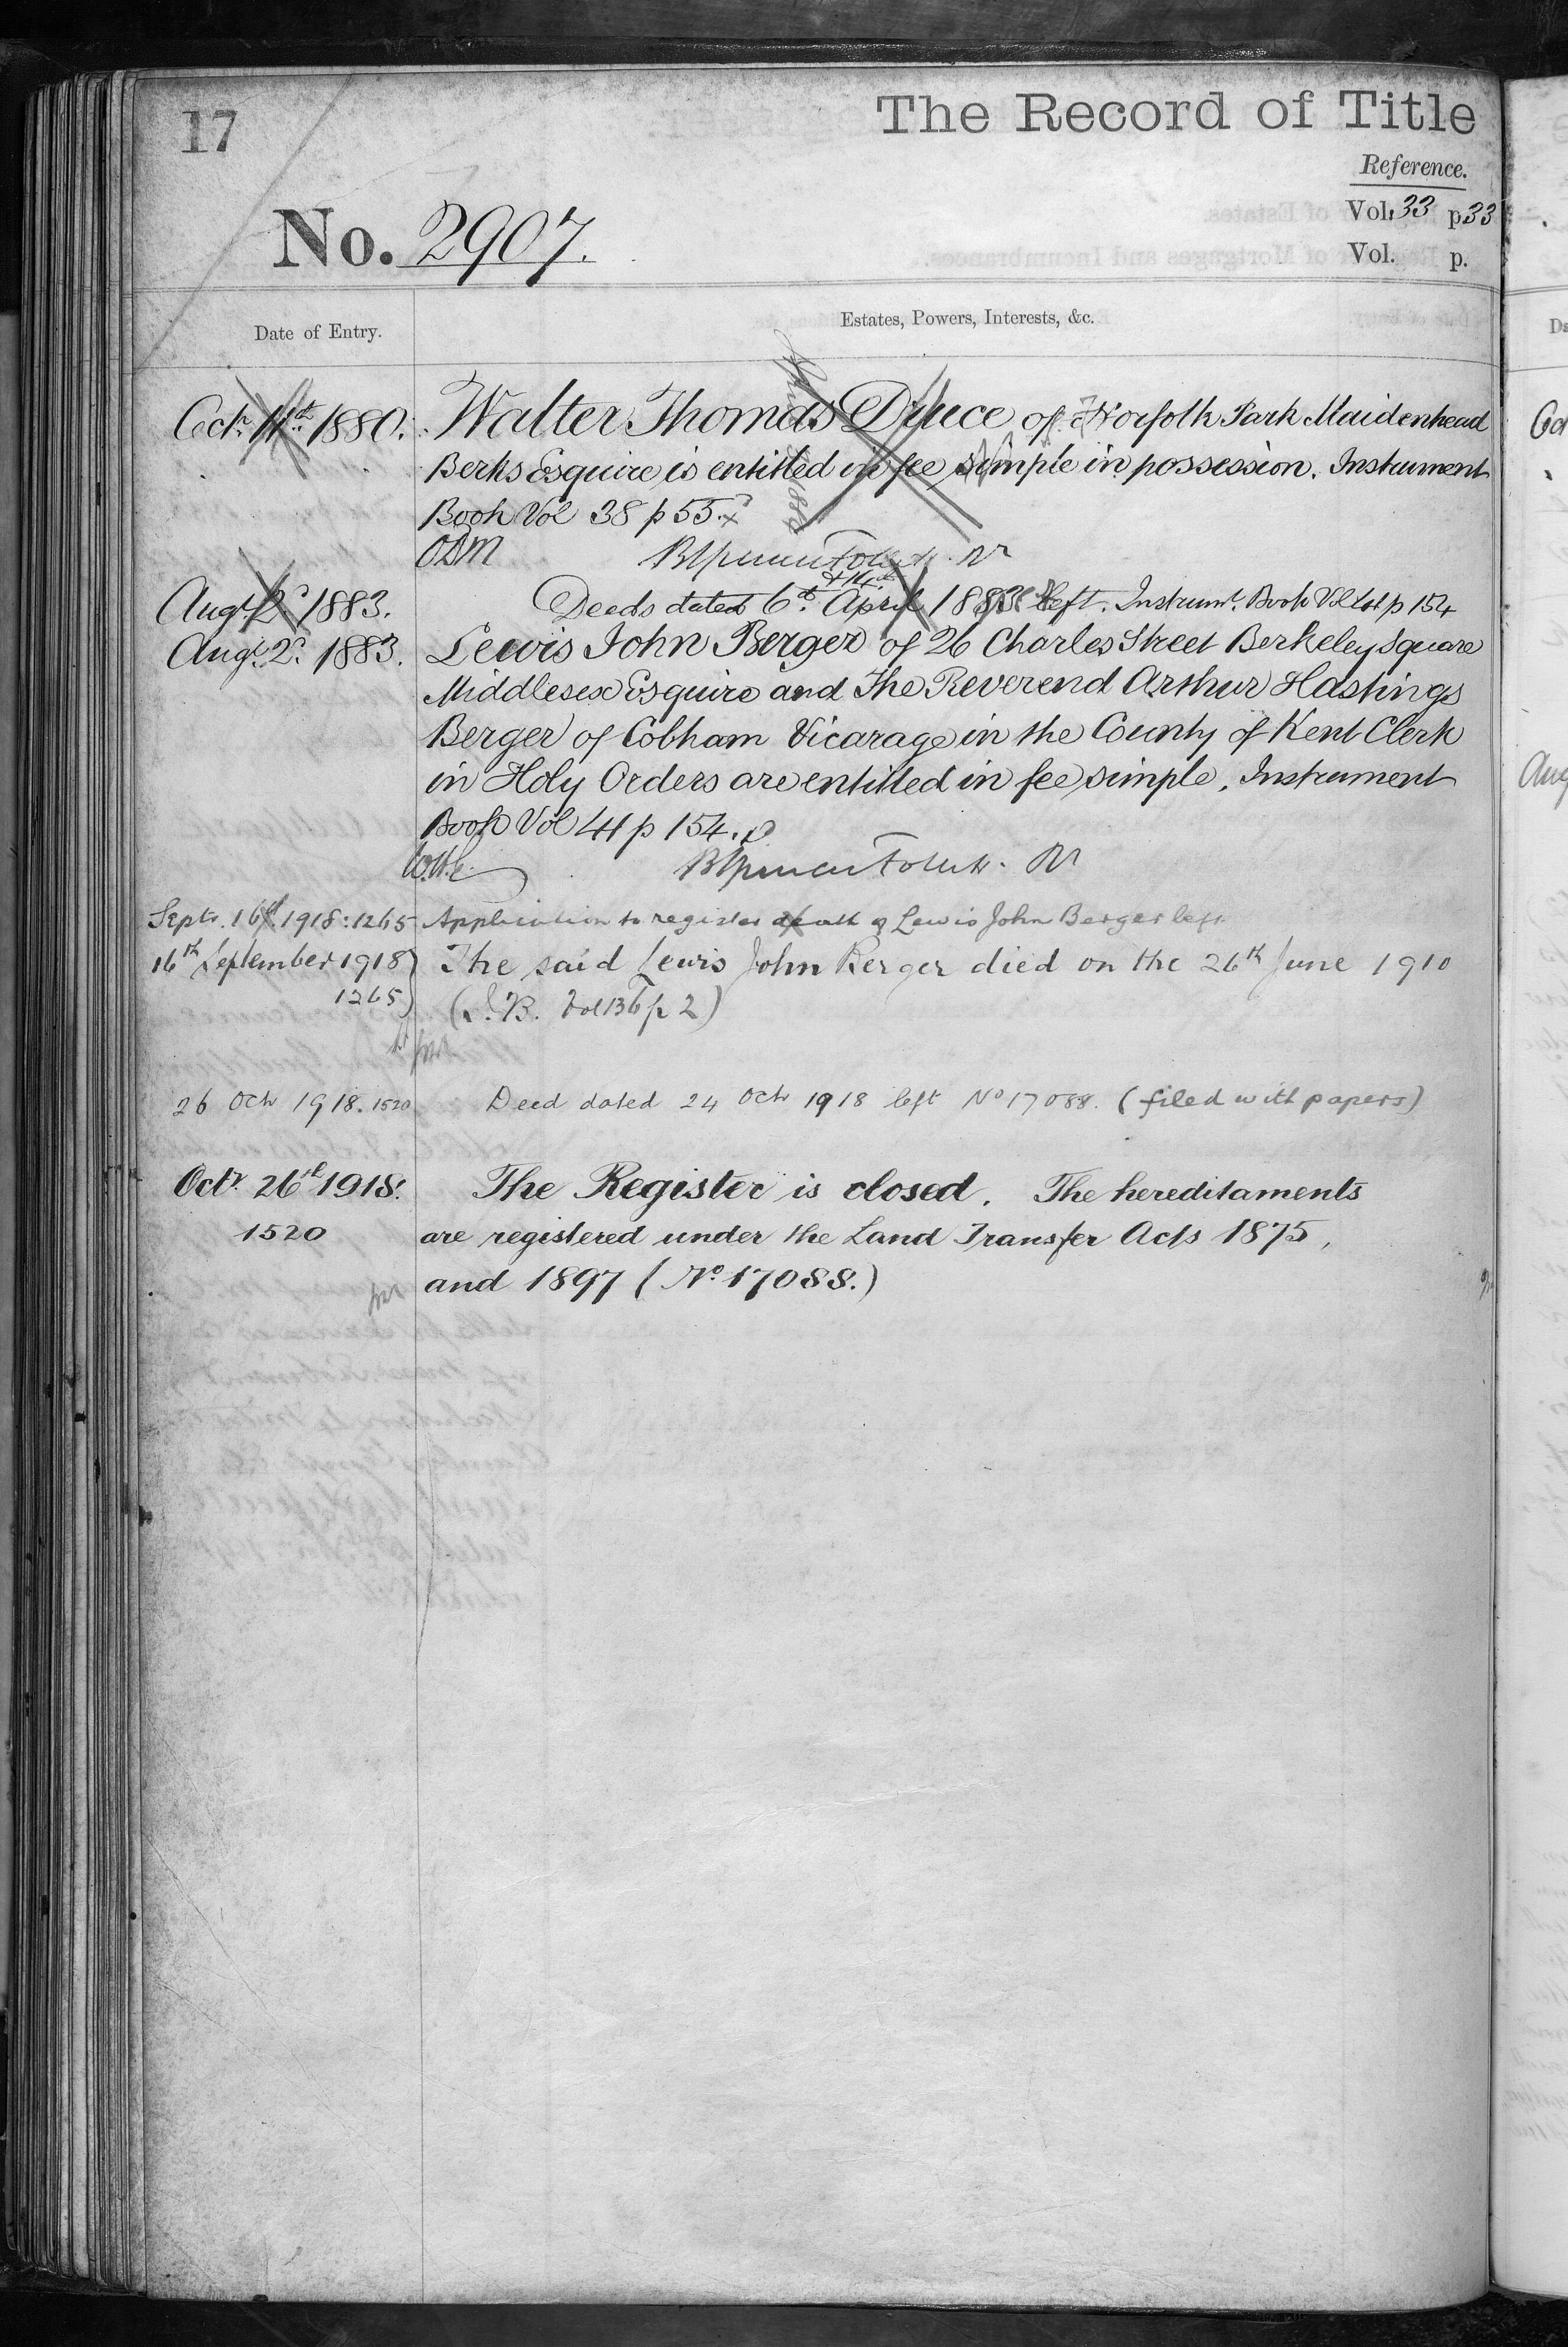 17
The Record of Title
Reference.
Vol. 33 p 33
No. 2907.
Vol. p.
Date of Entry.
Estates, Powers, Interests, &c.
Octr. 11th 1880. Walter Thomas Druce of Norfolk Park Maidenhead
Berks Esquire is entitled in fee simple in possession. Instrument
Book Vol 38 p 55.
+ 14th
Augt. 2d. 1883. Deeds dated 6th. April 1883 left. Instrumt. Book Vol 41 p 154
Augt. 2d. 1883. Lewis John Berger of 26 Charles Street Berkeley Square
Middlesex Esquire and The Reverend Arthur Hastings
Berger of Cobham Vicarage in the County of Kent Clerk
in Holy Orders are entitled in fee simple. Instrument
Book Vol 41 p 154.
Septr. 16th. 1918: 1265 Application to register death of Lewis John Berger left
16th September 1918 The said Lewis John Berger died on the 26th June 1910
1265 (I.B. Vol 136 p 2)
26 Oct 1918. 1520 Deed dated 24 Oct 1918 left No 17088. (filed with papers)
Octr. 26th 1918. The Register is closed. The hereditaments
1520 are registered under the Land Transfer Acts 1875,
and 1897 (No. 17088.)